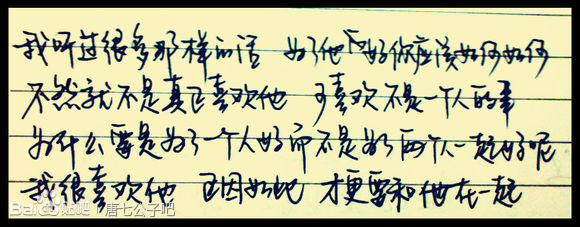 我听过很多那样的话 为了他的好你应该如何如何
不然就不是真正喜欢他 可喜欢不是一个人的事
为什么要是为了一个人好而不是为了两个人一起好呢
我很喜欢他 正因如此 才更要和他在一起
Baidu贴吧 唐七公子吧